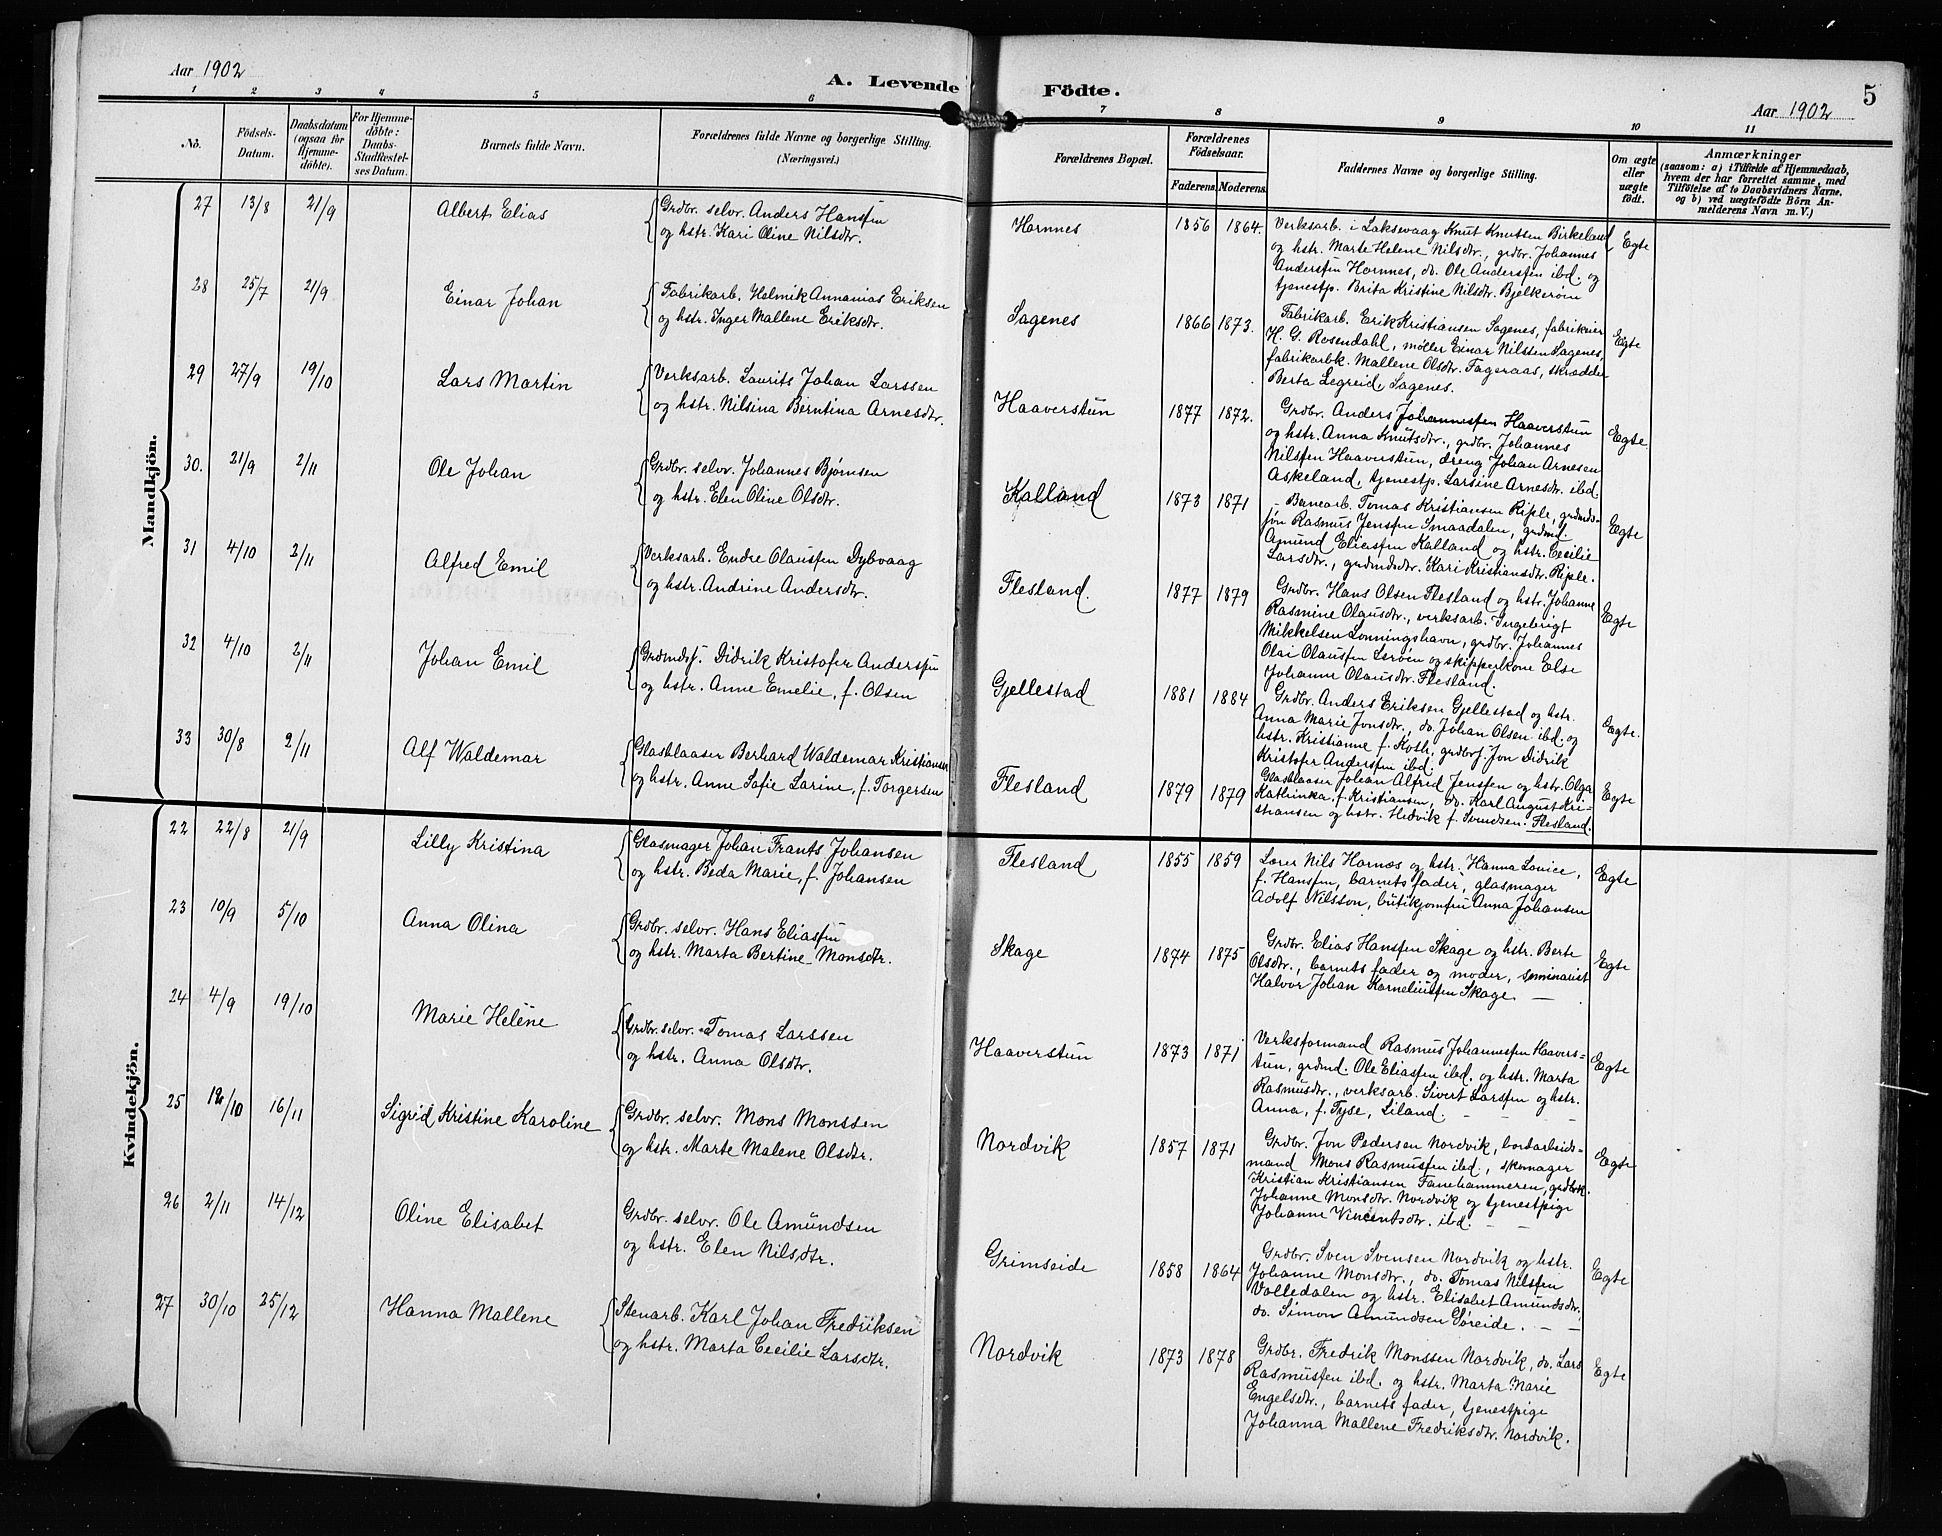 Aar 1902
A. Levende
1 2 3 4 5 6
No.
Födsels-
Datum.
Daabsdatum
(ogsaa for
Hjemme-
döbte).
For Hjemme-
döbte:
Daabs-
Stadfæstel-
ses Datum.
Barnets fulde Navn.
Forældrenes fulde Navne og borgerlige Stilling.
(Næringsvei.)
Mandkjön.
27 13/8 21/9 Albert Elias
Grdbr. selv. Anders Hansſen
og hstr. Kari Oline Nilsdtr.
28 25/7 21/9 Einar Johan
Fabrikarb. Helmik Annanias Eriksen
og hstr. Inger Mallene Eriksdtr.
29 27/9 19/10 Lars Martin
Verksarb. Laurits Johan Larssen
og hstr. Nilsina Berntina Arnesdtr.
30. 21/9 2/11 Ole Johan
Grdbr. selv. Johannes Bjørnsen
og hstr. Elen Oline Olsdtr.
31 4/10 2/11 Alfred Emil
Verksarb. Endre Olausſen Dybvaag
og hstr. Andrine Andersdtr.
32 4/10 2/11 Johan Emil
Grdmdsf. Didrik Kristofer Andersſen
og hstr. Anne Emelie, f. Olsen
33 30/8 2/11 Alf Waldemar
Glasblaaser Berhard Waldemar Kristiansen
og hstr. Anne Sofie Larine, f. Torgersen
Kvindekjön.
22 22/8 21/9 Lilly Kristina
Glasmager Johan Frants Johansen
og hstr. Beda Marie, f. Johansen
23 10/9 5/10 Anna Olina
Grdbr. selv. Hans Eliasſen
og hstr. Marta Bertine Monsdtr.
24 4/9 19/10 Marie Helene
Grdbr. selv. Tomas Larssen
og hstr. Anna Olsdtr.
25 12/10 16/11 Sigrid Kristine Karoline
Grdbr. selv. Mons Monssen
og hstr. Marte Malene Olsdtr.
26 2/11 14/12 Oline Elisabet
Grdbr. selv. Ole Amundsen
og hstr. Elen Nilsdtr.
27 30/10 25/12 Hanna Mallene
Stenarb. Karl Johan Fredriksen
og hstr. Marta Cecilie Larsdtr.
Födte.
5
Aar 1902
7 8 9 10 11
Forældrenes Bopæl.
Forældrenes
Födselsaar.
Faderens. Moderens.
Faddernes Navne og borgerlige Stilling.
Om ægte
eller
uægte
födt.
Anmærkninger
(saasom: a) i Tilfælde af Hjemmedaab,
hvem der har forrettet samme, med
Tilföielse af to Daabsvidners Navne,
og b) ved uægtefödte Börn An-
melderens Navn m. V.)
Hornnes 1856 1864. Egte
Verksarb. i Laksevaag Knut Knutsen Birkeland
og hstr. Marte Helene Nilsdtr., grdbr. Johannes
Andersſen Hornnes, do. Ole Andersſen ibd. og
tjenestp. Brita Kristine Nilsdtr. Bjelkerøen
Sagenes 1866 1873. Egte
Fabrikarb. Erik Kristiansen Sagenes, fabrikeier
H. G. Rosendahl, møller Einar Nilssen Sagenes,
fabrikarbk. Mallene Olsdtr. Fageraas, skrædder
Berta Legreid, Sagenes.
Haaverstun 1877 1872. Egte
Grdbr. Anders Johannesſen Haaverstun
og hstr. Anna Knutsdtr., grdbr. Johannes
Nilsſen Haaverstun, dreng Johan Arnesen
Askeland, tjenestp. Larsine Arnesdtr. ibd.
Kalland 1873 1871 Egte
Banearb. Tomas Kristiansen Riple, grdmds-
søn Rasmus Jensſen Smaadalen, grdmd.
Amund Eliasſen Kalland og hstr. Cecilie
Larsdtr., grdmdsdtr. Kari Kristiansdtr. Riple.
Flesland. 1877 1879 Egte
Grdbr. Hans Olsen Flesland og hstr. Johanne
Rasmine Olausdtr., verksarb. Ingebrigt
Mikkelsen Lønningshavn, grdbr. Johannes
Olai Olausſen Lerøen og skipperkone Else
Johanne Olausdtr. Flesland.
Gjellestad 1881 1884 Egte.
Grdbr. Anders Eriksen Gjellestad og hstr.
Anna Marie Jonsdtr., do. Johan Olsen ibd. og
hstr. Kristianne f. Koth, grdbrs. Jon Didrik
Kristofer Andersſen ibd.
Flesland 1879 1879 Egte
Glasblaaser Johan Alfred Jensſen og hstr. Olga
Kathinka, f. Kristiansen, do. Karl August Kri-
stiansen og hstr. Hedvik f. Svendsen. Flesland.
Flesland 1855 1859 Egte
Lærer Nils Hornæs og hstr. Hanna Lovice,
f. Hansſen, barnets fader, glasmager
Adolf Nilsson, butikjomfru Anna Johansen
Skage 1874 1875 Egte
Grdbr. Elias Hansſen Skage og hstr. Berte
Olsdtr., barnets fader og moder, seminarist
Halvor Johan Korneliusſen Skage. —
Haaverstun 1873 1871 Egte
Verksformand Rasmus Johannesſen Haavers=
tun, grdmd. Ole Eliasſen ibd. og hstr. Marta
Rasmusdtr., verksarb. Sivert Larsſen og hstr.
Anna, f. Tyse, Liland. — —
Nordvik 1857 1871 Egte
Grdbr. Jon Pedersen Nordvik, bordarbeids-
mand Mons Rasmusſen ibd., skomager
Kristian Kristiansen Fanehammeren, grdbrk.
Johanne Monsdtr. Nordvik og tjenestpige
Johanne Vincentsdtr. ibd. — —
Grimseide 1858 1864 Egte
Grdbr. Sven Svensen Nordvik og hstr.
Johanne Monsdtr., do. Tomas Nilsſen
Volledalen og hstr. Elisabet Amundsdtr.
do. Simon Amundsen Søreide. — —
Nordvik 1873 1878 Egte
Grdbr. Fredrik Monssen Nordvik, do. Lars
Rasmusſen ibd. og hstr. Marta Marie
Engelsdtr., barnets fader, tjenestpige
Johanna Mallene Fredriksdtr. Nordvik.